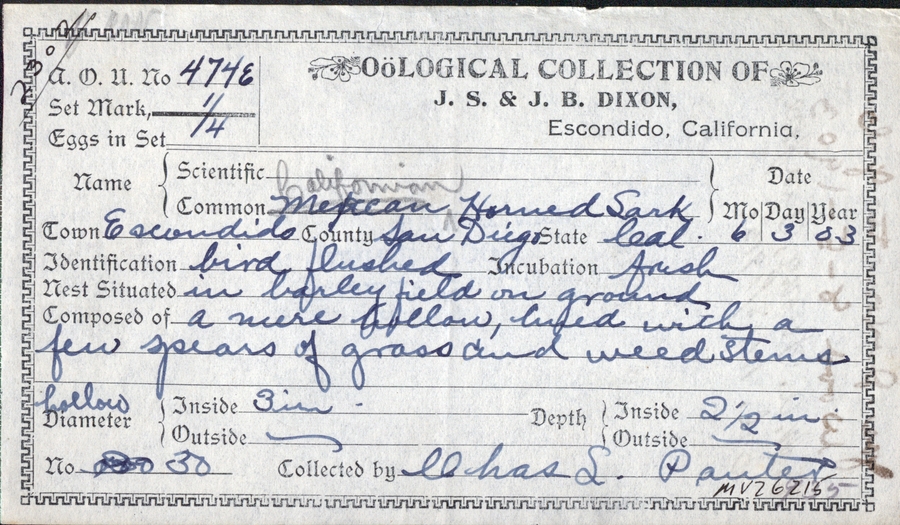 A. O. U. No 474E
OöLOGICAL COLLECTION OF
J. S. & J. B. DIXON,
Escondido, California,
Set Mark, 1/4
Eggs in Set
Name
Scientific
Californian
Common Mexican Horned Lark
Date
Mo Day Year
Town Escondido County San Diego State Cal. 6 3 03
Identification bird flushed Incubation fresh
Nest Situated in barley field on ground
Composed of a mere hollow, lined with a
few spears of grass and weed stems
hollow
Diameter Inside 3 in. Depth Inside 2 1/2 in
Outside Outside
No 30 Collected by Chas L.